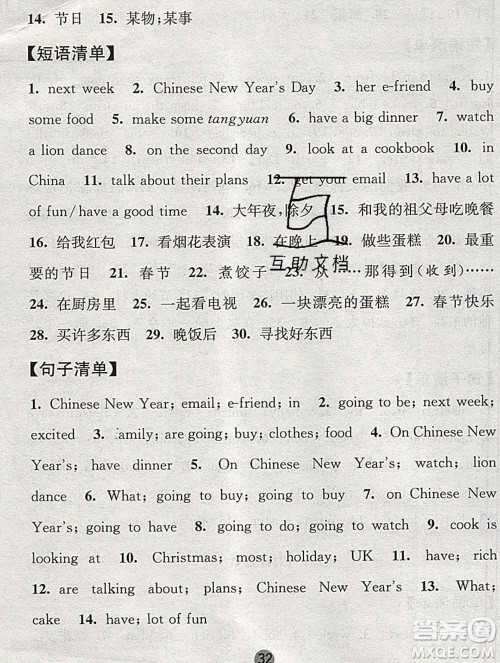 14. 节日　15. 某物;某事
【短语清单】
1. next week　2. Chinese New Year's Day　3. her e-friend　4. buy
some food　5. make some tangyuan　6. have a big dinner　7. watch
a lion dance　8. on the second day　9. look at a cookbook　10. in
China　11. talk about their plans　12. get your email　13. have a lot
of fun/have a good time　14. 大年夜,除夕　15. 和我的祖父母吃晚餐
16. 给我红包　17. 看烟花表演　18. 在晚上　19. 做些蛋糕　20. 最重
要的节日　21. 春节　22. 煮饺子　23. 从……那得到(收到)……
24. 在厨房里　25. 一起看电视　26. 一块漂亮的蛋糕　27. 春节快乐
28. 买许多东西　29. 晚饭后　30. 寻找好东西
【句子清单】
1. Chinese New Year; email; e-friend; in　2. going to be; next week;
excited　3. family; are going; buy; clothes; food　4. On Chinese New
Year's; have dinner　5. On Chinese New Year's; watch; lion
dance　6. What; going to buy; going to buy　7. What; going to
do; going to have　8. going to do; going to make　9. cook is
looking at　10. Christmas; most; holiday; UK　11. have; rich
12. are talking about; plans; Chinese New Year　13. What;
cake　14. have; lot of fun
32
互助文档
答案圈
MXQE.COM